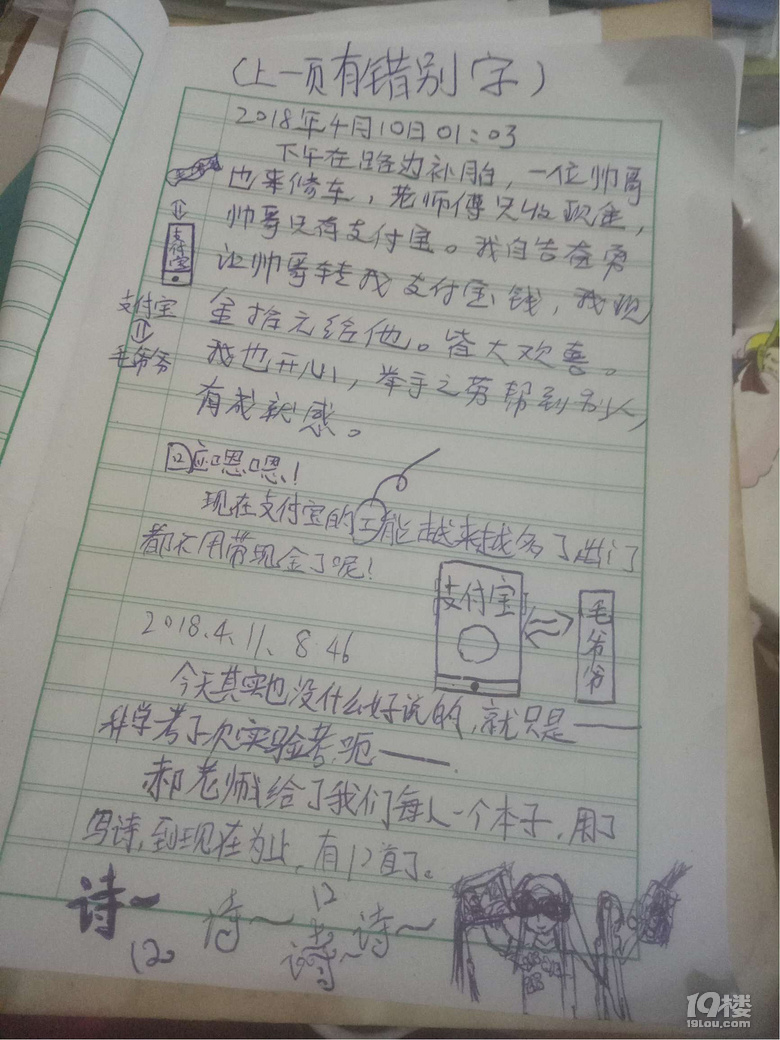 （上一页有错别字）
2018年4月10日01:03
下午在路边补胎，一位帅哥
也来修车，老师傅只收现金，
帅哥只有支付宝。我自告奋勇
让帅哥转我支付宝钱，我现
金拾元给他。皆大欢喜。
我也开心，举手之劳帮到别人，
有成就感。
支付宝
支付宝
毛爷爷
回应嗯嗯！
现在支付宝的工能越来越多了出门
都不用带现金了呢！
支付宝
毛爷爷
2018.4.11.8:46
今天其实也没什么好说的，就只是——
科学考了次实验考，呃——.
郝老师给了我们每人一个本子，用了
写诗，到现在为止，有12首了。
诗～
12
诗～
12
诗～
诗～
19楼
19lou.com